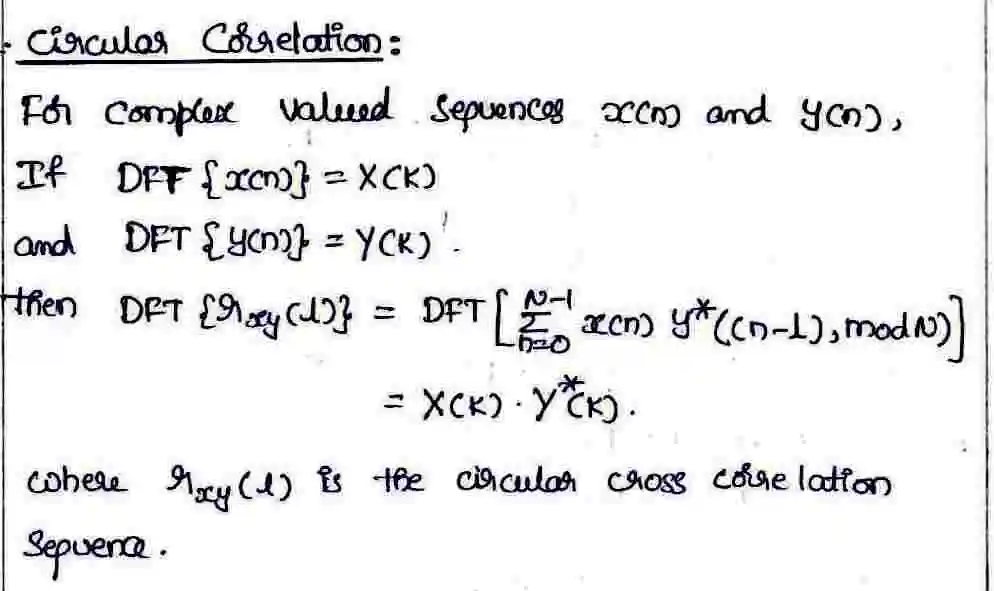 Circular Correlation:
For complex valued sequences x(n) and y(n),
If DFT {x(n)} = X(K)
and DFT {y(n)} = Y(K).
then DFT {r_xy(l)} = DFT [ Σ_{n=0}^{N-1} x(n) y*((n-l), mod N) ]
= X(K) · Y*(K).
where r_xy(l) is the circular cross correlation
sequence.